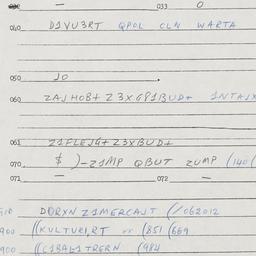 — 033 0
040 D1VU3RT QPOL CLN WARTA
050 JO .
060 ZAJHOB+ Z3XGP1BUD+ 1NTAJX
061 Z1FLEJG+ Z3XBUD+
070 $ )-Z1MP QBUT ZUMP (140(
071 — 072 —
DORXN Z1MERCAJT (/062012
900 ((KULTURI,RT (851 (669
900 ((C1BAL1TRERN (984